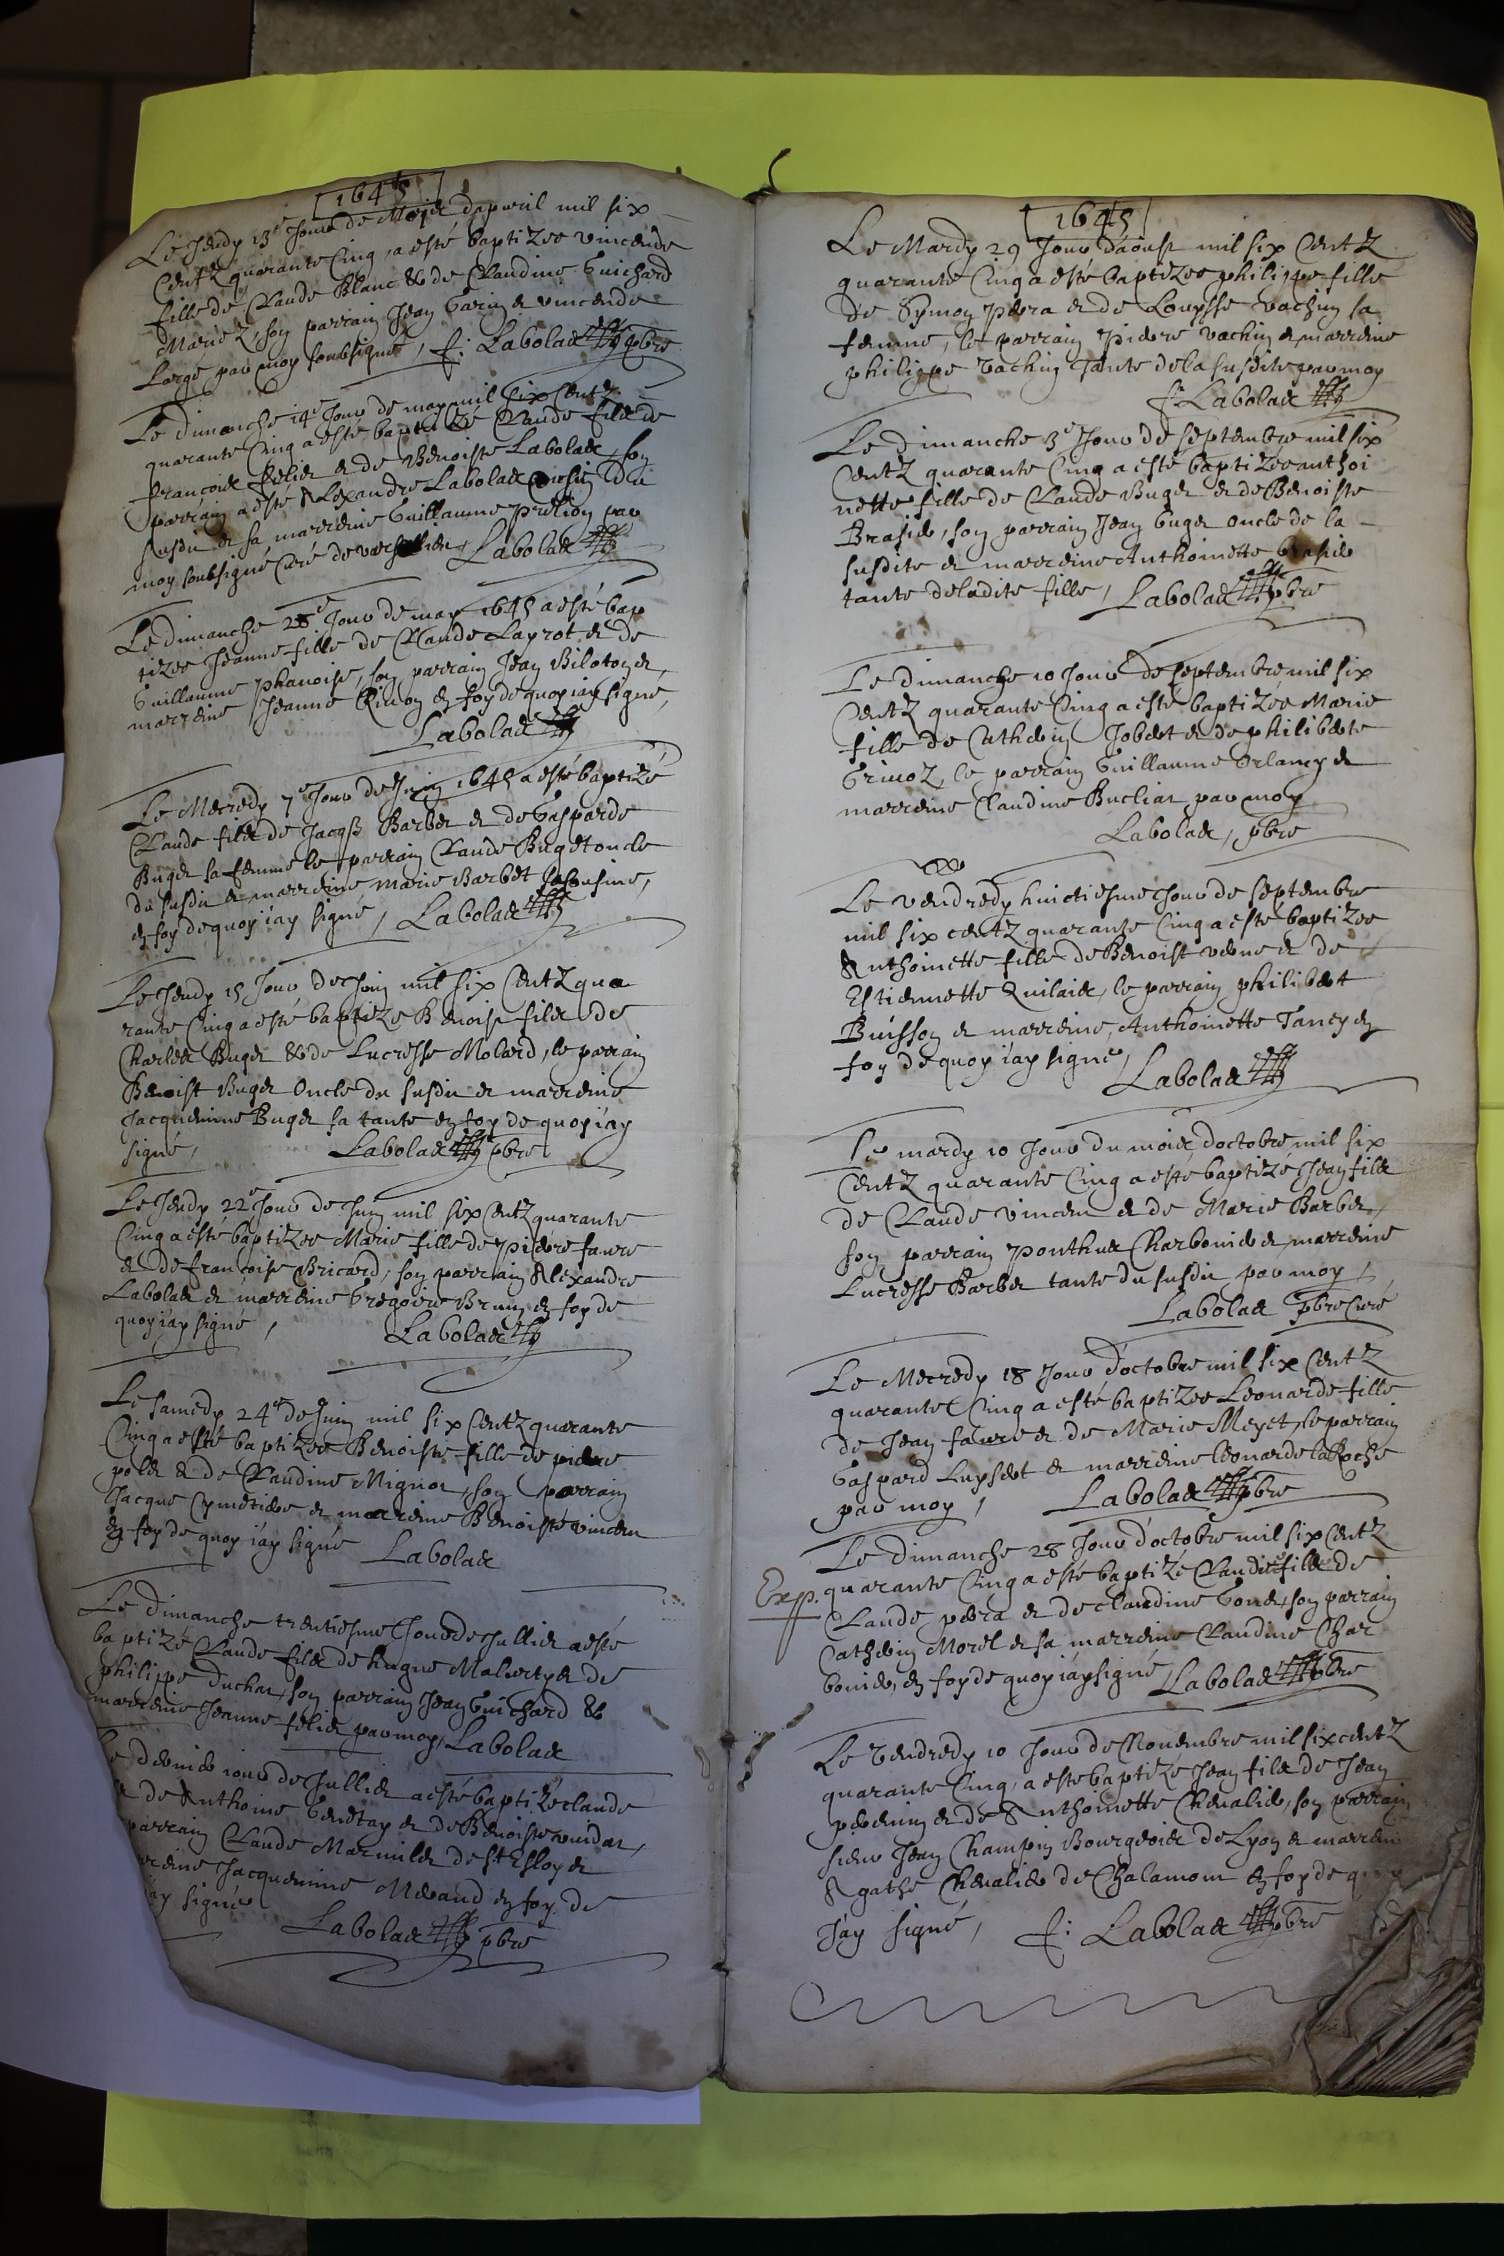 1645
Le Jeudy 13e Jour de Mois dapvril mil six
Centz quarante Cinq, a esté baptizee vincende
fille de Claude Blanc & de Claudine Guichard
Mariez, son parrain Jean Garin et vincende
Large par moy soubsigné, f: Labolae pbre
Le dimanche 14e Jour de may mil six Centz
quarante Cinq a esté baptizé Claude filz de
francois felier et de Benoiste Labolae, son
parrain a esté Alexandre Labolae Cousin du
susdit et sa marreine Guillaume prelion par
moy soubsigné Curé de Labolae
Le dimanche 28e Jour de may 1645 a esté bap
tizee Jeanne fille de Claude Layrot et de
Guillaume phanoise, son parrain Jean Biloton et
marreine Jeanne Rivon en foy de quoy iay signé,
Labolae
Le Mecredy 7e Jour de Juin 1645 a esté baptizé
Claude filz de Jacqs Barbet et de Gasparde
Buget sa femme le parrain Claude Buget oncle
du susdit et marreine Marie Barbet sa cousine,
en foy de quoy iay signé, Labolae
Le Jeudy 15 Jour de Juin mil six Centz qua
rante Cinq a esté baptize Benoist filz de
Charles Buget & de Lucresse Molard, le parrain
Benoist Buget Oncle du susdit et marreine
Jacquemine Buget sa tante en foy de quoy iay
signé, Labolae pbre
Le Jeudy 22e Jour de Juin mil six Centz quarante
Cinq a esté baptizee Marie fille de pierre faure
et de francoise Bricard, son parrain Alexandre
Labolae et marreine Gregoire Brun en foy de
quoy iay signé, Labolae
Le samedy 24e de Juin mil six Centz quarante
Cinq a esté baptizee Benoiste fille de pierre
polet & de Claudine Mignot, son parrain
Jacque Cymetiere et marreine Benoiste vincent
En foy de quoy iay signé Labolae
Le dimanche trentiesme Jour de Jullier a esté
baptizé Claude filz de hugue Maluerty et de
philippe Duchat, son parrain Jean Guichard &
marreine Jeanne felier par moy, Labolae
Le dernier iour de Jullier a esté baptizé claude
de Anthoine Gentay et de Benoiste
parrain Claude Marmilet de st Esloy et
Jacquemine Meraud en foy de
iay signé
Labolae pbre
1645
Le Mardy 29 Jour d'aoust mil six Centz
quarante Cinq a esté baptizee philippe fille
de Symon pera et de Louysse vachin sa
femme, le parrain pierre vachin et marreine
philippe vachin tante de la susdite par moy
f: Labolae
Le dimanche 3e Jour de septembre mil six
Centz quarante Cinq a esté baptizee anthoi
nette fille de Claude Buget et de Benoiste
Brasier, son parrain Jean buget oncle de la
susdite et marreine Anthoinette brasier
tante de ladite fille, Labolae pbre
Le dimanche 10 Jour de septembre mil six
Centz quarante Cinq a esté baptizée Marie
fille de Catherin Jobert et de philiberte
Grivoz, le parrain Guillaume Orlancy et
marreine Claudine Bucliat par moy
Labolae, pbre
Le vendredy huictiesme Jour de septembre
mil six centz quarante Cinq a esté baptizee
Anthoinette fille de Benoist verne et de
Estiennette Quilaie, le parrain philibert
Buisson et marreine, Anthoinette Tancy en
foy de quoy iay signé, Labolae
Le mardy 10 Jour du mois doctobre mil six
Centz quarante Cinq a este baptizé Jean filz
de Claude vincent et de Marie Barbet,
son parrain ponthus Charbonier et marreine
Lucresse Barbet tante du susdit par moy,
Labolae pbre Curé
Le Mecredy 18 Jour d'octobre mil six Centz
quarante Cinq a esté baptizee Leonarde fille
de Jean faure et de Marie Meyet, le parrain
Gaspard Luyset et marreine leonarde la Roche
par moy, Labolae pbre
Le dimanche 28 Jour d'octobre mil six Centz
Exp. quarante Cinq a esté baptizé Claude filz de
Claude pera et de claudine Gonet, son parrain
Catherin Morel et sa marreine Claudine Char
bonier, en foy de quoy iay signé, Labolae pbre
Le Vendredy 10 Jour de Nouembre mil six centz
quarante Cinq, a esté baptizé Jean filz de Jean
peronin et de Anthoinette Chevalier, son parrain
sieur Jean Champin Bourgeois de Lyon et marreine
Agathe Chevalier de Chalamont en foy de quoy
Jay signé, f: Labolae pbre